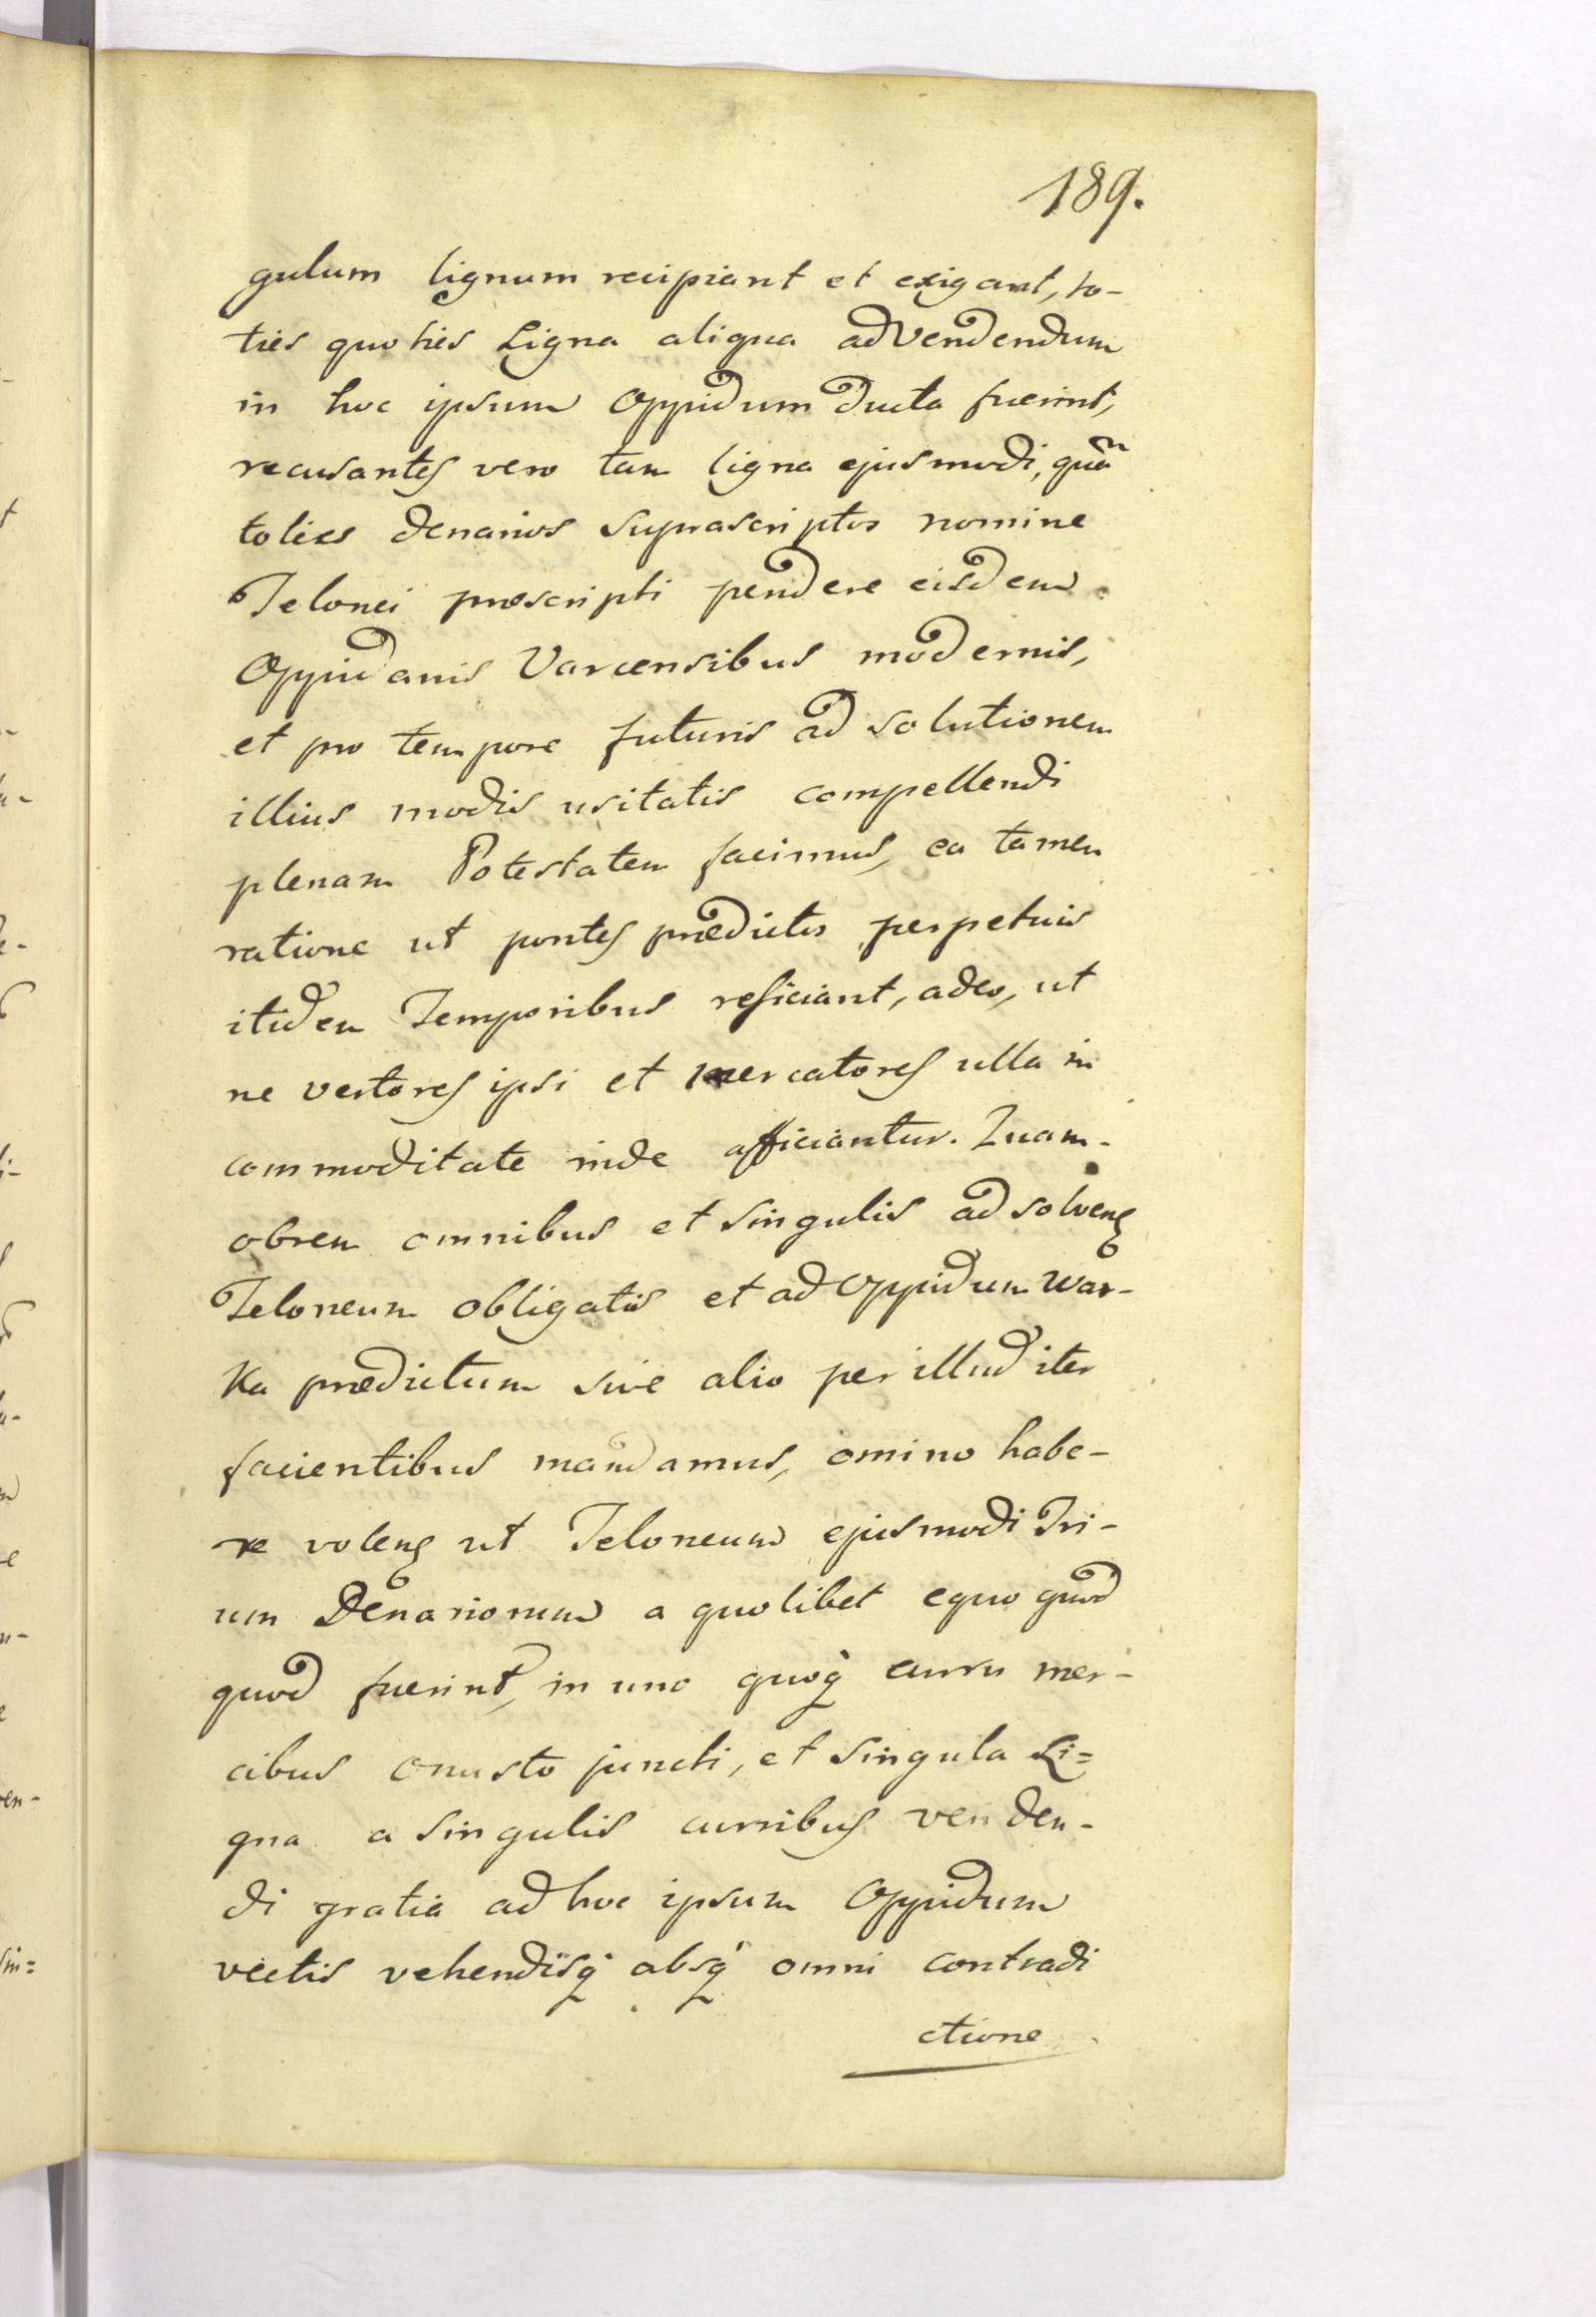 189.
gulum lignum recipiant et exigant, to-
ties quoties Ligna aliqua ad vendendum
in hoc ipsum Oppidum ducta fuerint,
recusantes vero tam ligna ejusmodi, quam
toties denarios suprascriptos nomine
Telonei proscripti pendere eisdem
Oppidanis Varcensibus modernis,
et pro tempore futuris ad solutionem
illius modis usitatis compellendi
plenam Potestatem facimus, ea tamen
ratione ut pontes prædictos perpetuis
itidem Temporibus reficiant, adeo, ut
ne vectores ipsi et mercatores ulla in
commoditate inde afficiantur. Quam-
obrem omnibus et singulis ad solveng
Teloneum obligatis et ad Oppidum War-
Ka prædictum sive alio per illud iter
facientibus mandamus, omino habe-
re voleng ut Teloneum ejusmodi Tri-
um Denariorum a quolibet equo quod
quod fuerint, in uno quoq̀ curru mer-
cibus onusto juncti, et singula Li=
gna a singulis curribus venden-
di gratia ad hoc ipsum Oppidum
vectis vehendisq̀ absq̀ omni contradi
ctione